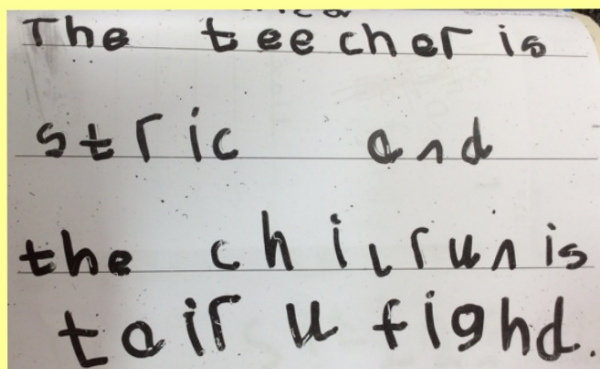 The teecher is
stric and
the chilrun is
tair u fighd.